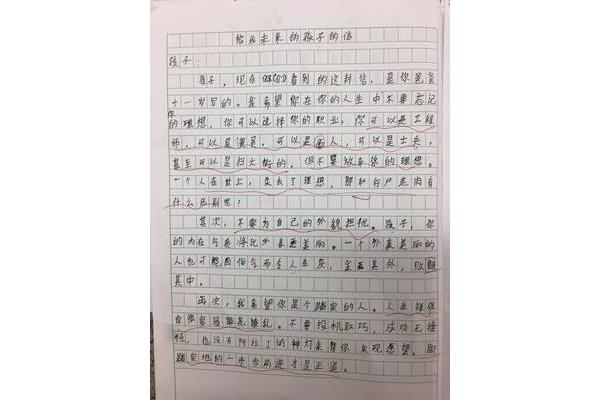 给我未来的孩子的信
孩子：
孩子，现在你们看到的这封信，是你爸爸
十一岁写的。我希望你在你的人生中不要忘记
你
的理想，你可以选择你的职业，你可以是工程
师，可以是演员，可以是商人，可以是士兵，
甚至可以是扫大街的，但不要放弃你的理想。
一个人在世上，失去了理想，那和行尸走肉有
什么区别呢？
其次，不要为自己的外貌担扰。孩子，你
的内在气质将比外表更美丽。一个外表美丽的
人也可能因俗气而令人生厌，金玉其外，败絮
其中。
再次，我希望你是个踏实的人。人生
眼花缭乱。不要投机取巧，成功无捷
径，也没有阿拉丁的神灯来帮你实现愿望。脚
踏实地的一步步前进才是正道。